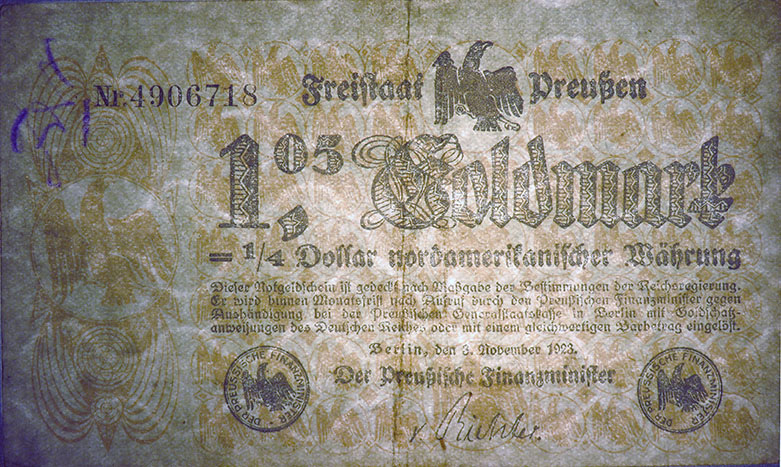 Nr. 4906718
Freistaat Preußen
1,05 Goldmark
= 1/4 Dollar nordamerikanischer Währung
Dieser Notgeldschein ist gedeckt nach Maßgabe der Bestimmungen der Reichsregierung.
Er wird binnen Monatsfrist nach Aufruf durch den Preußischen Finanzminister gegen
Aushändigung bei der Preußischen Generalstaatskasse in Berlin mit Goldschatz-
anweisungen des Deutschen Reiches oder mit einem gleichwertigen Barbetrag eingelöst.
Berlin, den 8. November 1923.
Der Preußische Finanzminister
DER PREUSSISCHE FINANZMINISTER
DER PREUSSISCHE FINANZMINISTER
v. Richter.